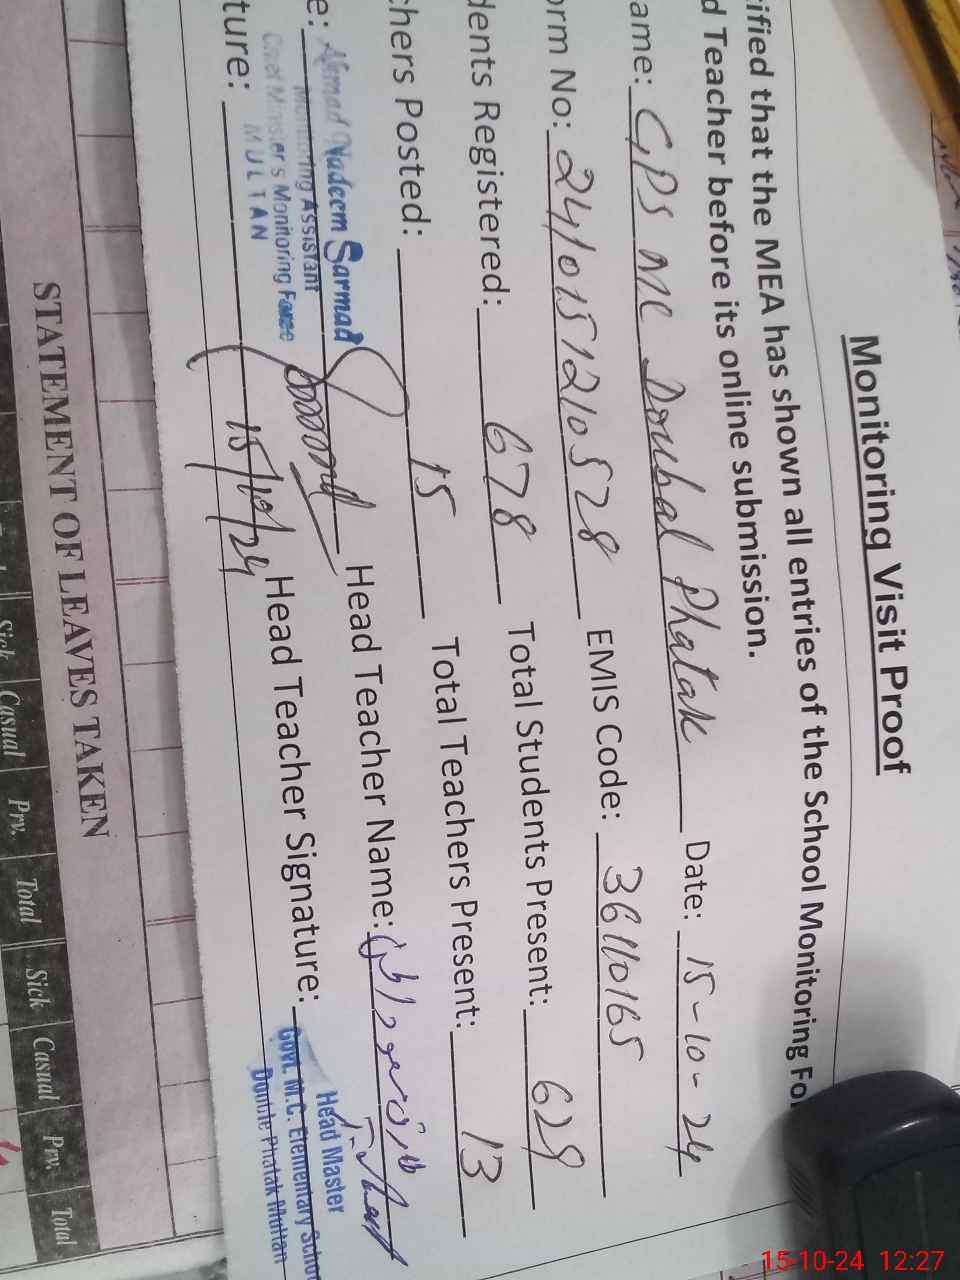 Monitoring Visit Proof
ified that the MEA has shown all entries of the School Monitoring Fo
d Teacher before its online submission.
ame: GPS MC Doubal Phatak Date: 15-10-24
orm No: 2410151210528 EMIS Code: 36110165
dents Registered: 678 Total Students Present: 629
chers Posted: 15 Total Teachers Present: 13
e: Ahmad Nadeem Sarmad Head Teacher Name:
Monitoring Assistant
Chief Minister's Monitoring Force
MULTAN
ture: 15/10/24 Head Teacher Signature:
Head Master
Govt. M.C. Elementary School
Double Phatak Multan
STATEMENT OF LEAVES TAKEN
Sick Casual Prv. Total Sick Casual Prv. Total
15-10-24 12:27